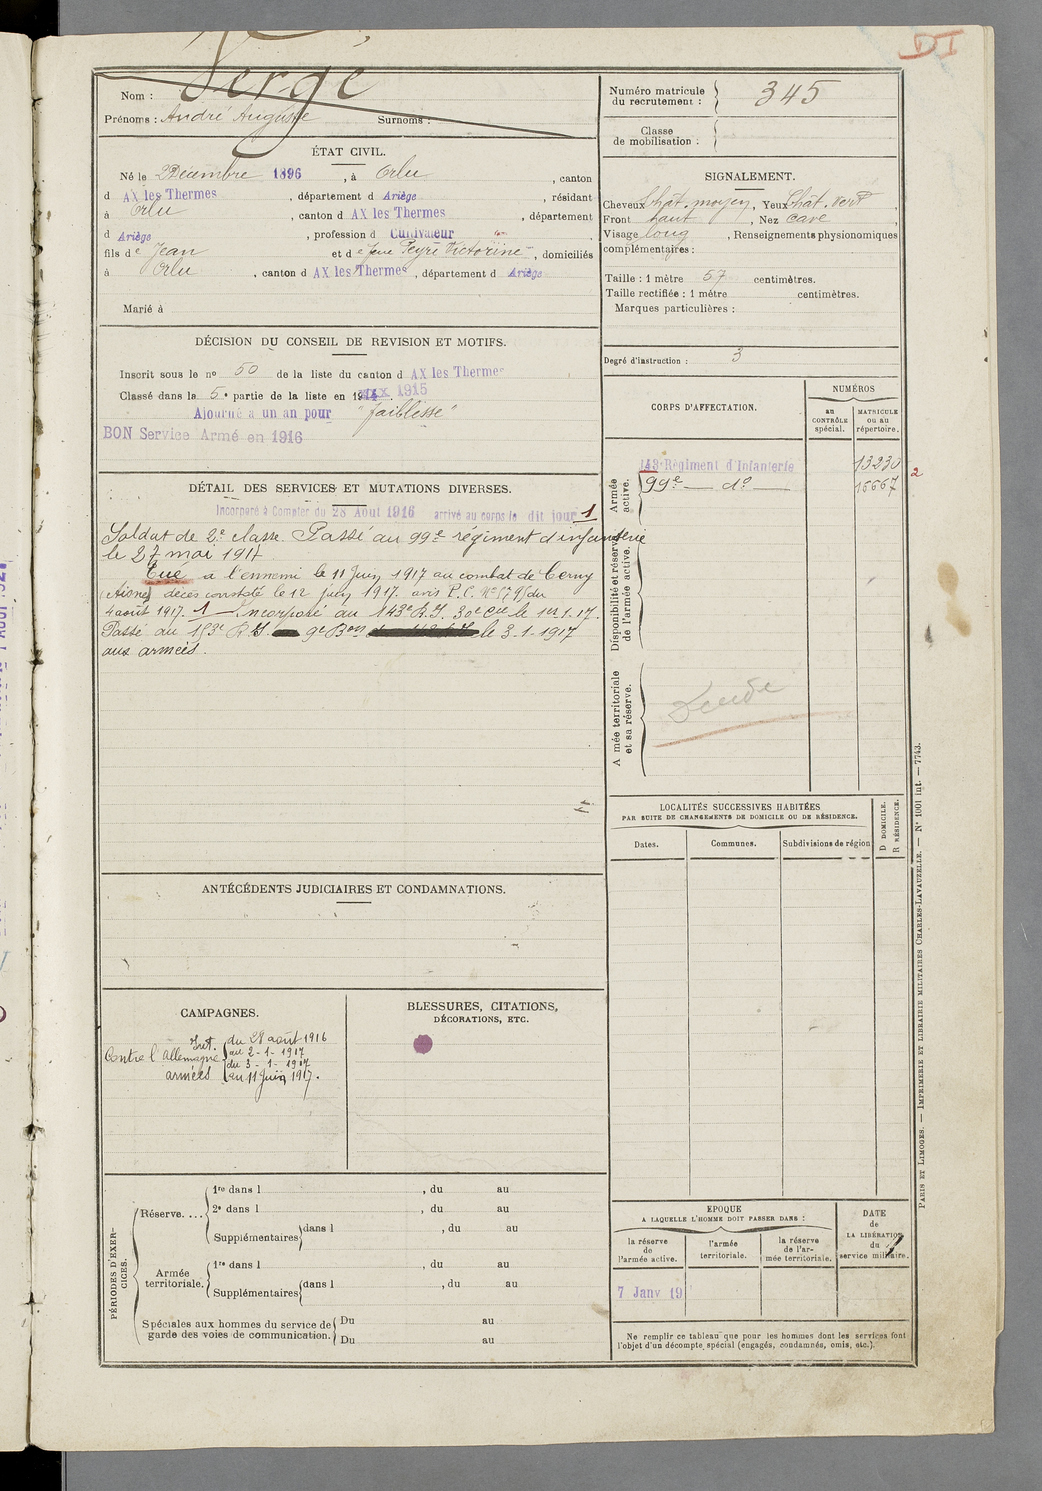 DI
Nom : Vergé
Prénoms : André Auguste Surnoms :
Numéro matricule du recrutement : 345
Classe de mobilisation :
ÉTAT CIVIL.
Né le 2 Décembre 1896, à Orlu, canton
d AX les Thermes, département d Ariège, résidant
à Orlu, canton d AX les Thermes, département
d Ariège, profession d Cultivateur
fils de Jean et de feue Peyre Victorine, domiciliés
à Orlu, canton d AX les Thermes, département d Ariège
Marié à
SIGNALEMENT.
Cheveux Chât. moyen, Yeux Chât. vert
Front haut, Nez cave
Visage long, Renseignements physionomiques
complémentaires :
Taille : 1 mètre 57 centimètres.
Taille rectifiée : 1 mètre centimètres.
Marques particulières :
Degré d'instruction : 3
DÉCISION DU CONSEIL DE REVISION ET MOTIFS.
Inscrit sous le nº 50 de la liste du canton d AX les Thermes
Classé dans la 5e partie de la liste en 1915
Ajourné à un an pour "faiblesse"
BON Service Armé en 1916
DÉTAIL DES SERVICES ET MUTATIONS DIVERSES.
Incorporé à Compter du 28 Aout 1916 arrivé au corps le dit jour 1
Soldat de 2e classe. Passé au 99e régiment d'infanterie
le 27 mai 1917
Tué à l'ennemi le 11 Juin 1917 au combat de Cerny
(Aisne) décès constaté le 12 juin 1917. avis P.C. Nº (79) du
4 août 1917. 1 Incorporé au 143e R.I. 30e Cie le 1er.1.17.
Passé au 153e R.I. 9e Bon le 3-1-1917
aux armées.
CORPS D'AFFECTATION.
NUMÉROS
au CONTRÔLE spécial.
MATRICULE ou au répertoire.
Armée active.
143e Régiment d'Infanterie 13230
99e — do — 16667 2
Disponibilité et réserve de l'armée active.
A mée territoriale et sa réserve.
LOCALITÉS SUCCESSIVES HABITÉES
PAR SUITE DE CHANGEMENTS DE DOMICILE OU DE RÉSIDENCE.
Dates. Communes. Subdivisions de région
D DOMICILE.
R RÉSIDENCE.
ANTÉCÉDENTS JUDICIAIRES ET CONDAMNATIONS.
CAMPAGNES.
Contre l'Allemagne
Int. du 28 août 1916
au 2-1-1917
armées du 3-1-1917
au 11 Juin 1917.
BLESSURES, CITATIONS,
DÉCORATIONS, ETC.
PÉRIODES D'EXERCICES.
Réserve....
1re dans l , du au
2e dans l , du au
Supplémentaires dans l , du au
Armée territoriale.
1re dans l , du au
Supplémentaires dans l , du au
Spéciales aux hommes du service de garde des voies de communication.
Du au
Du au
EPOQUE
A LAQUELLE L'HOMME DOIT PASSER DANS :
la réserve de l'armée active.
l'armée territoriale.
la réserve de l'armée territoriale.
DATE de LA LIBÉRATION du service militaire.
7 Janv 19
Ne remplir ce tableau que pour les hommes dont les services font
l'objet d'un décompte spécial (engagés, condamnés, omis, etc.).
PARIS ET LIMOGES. — IMPRIMERIE ET LIBRAIRIE MILITAIRES CHARLES-LAVAUZELLE. — Nº 1001 int. — 7743.